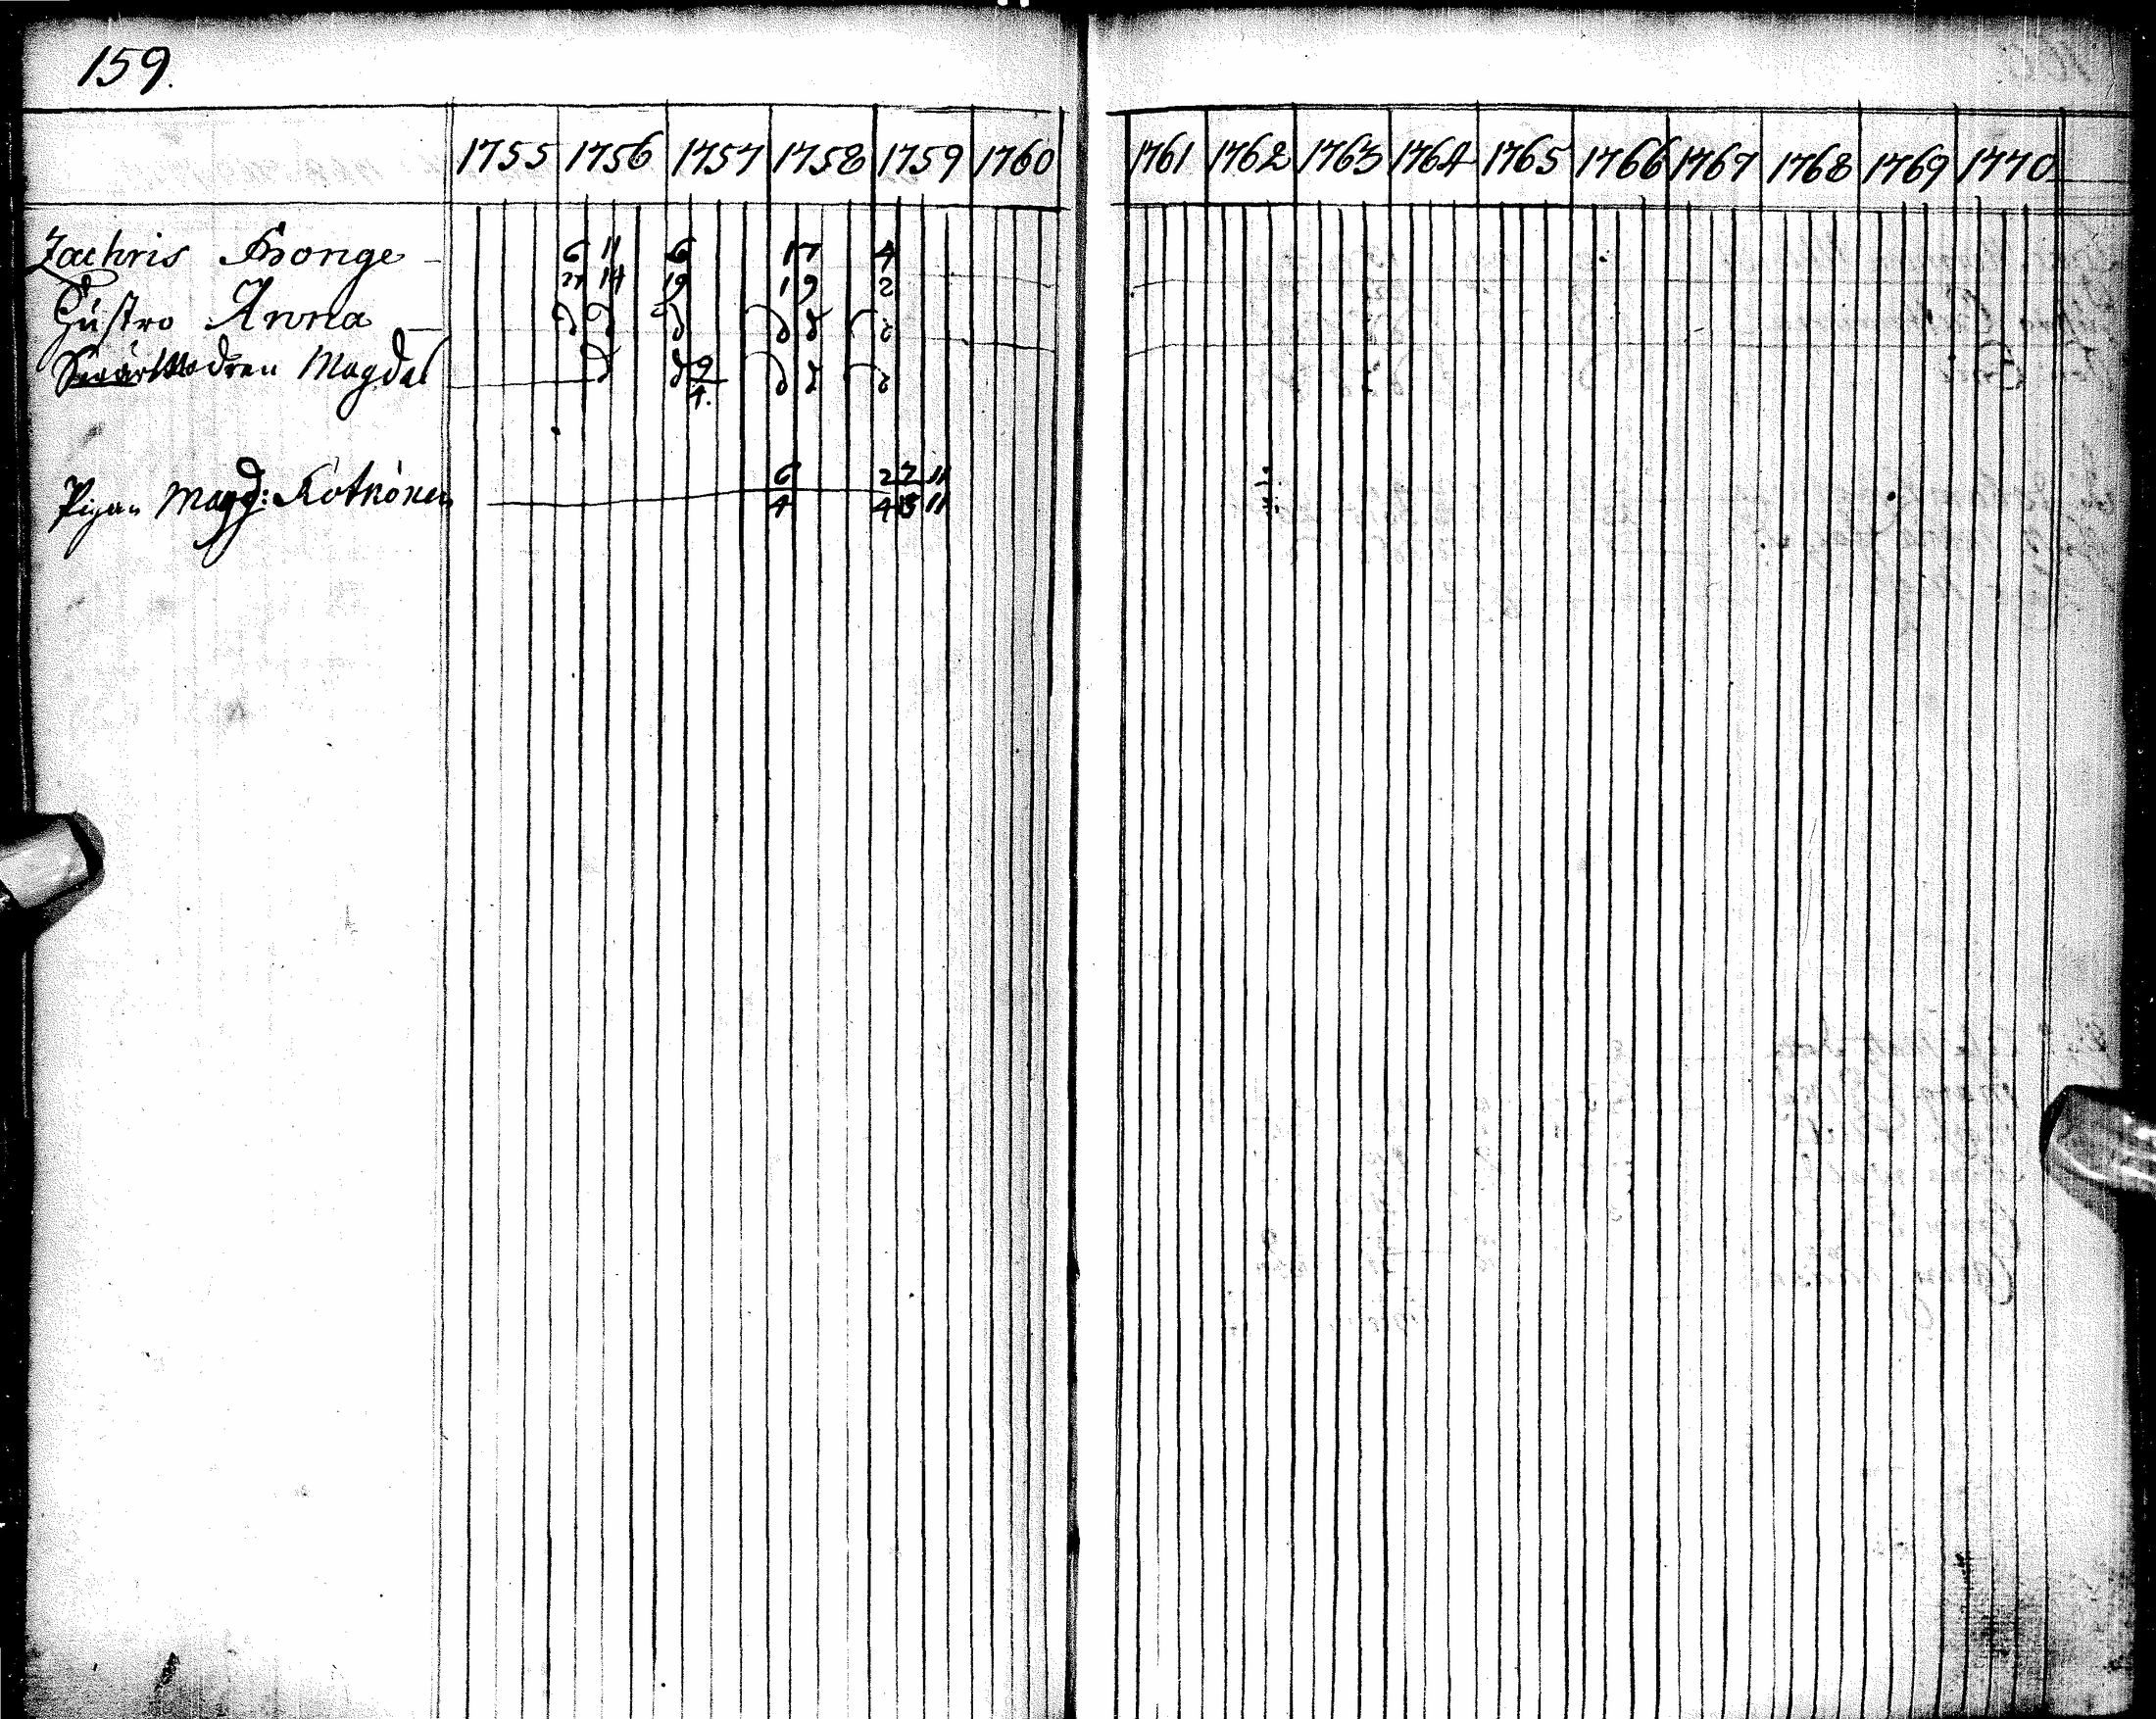 159.
1755 1756 1757 1758 1759 1760 1761 1762 1763 1764 1765 1766 1767 1768 1769 1770
Zachris Bonge 6 11 6 17 4
27 14 19 19 2
Hustro Anna d d d d d d
Swärmodren Magdal d d 9 d d d
4.
Pigan Magd: 6 2 7 11
4 4 8 11